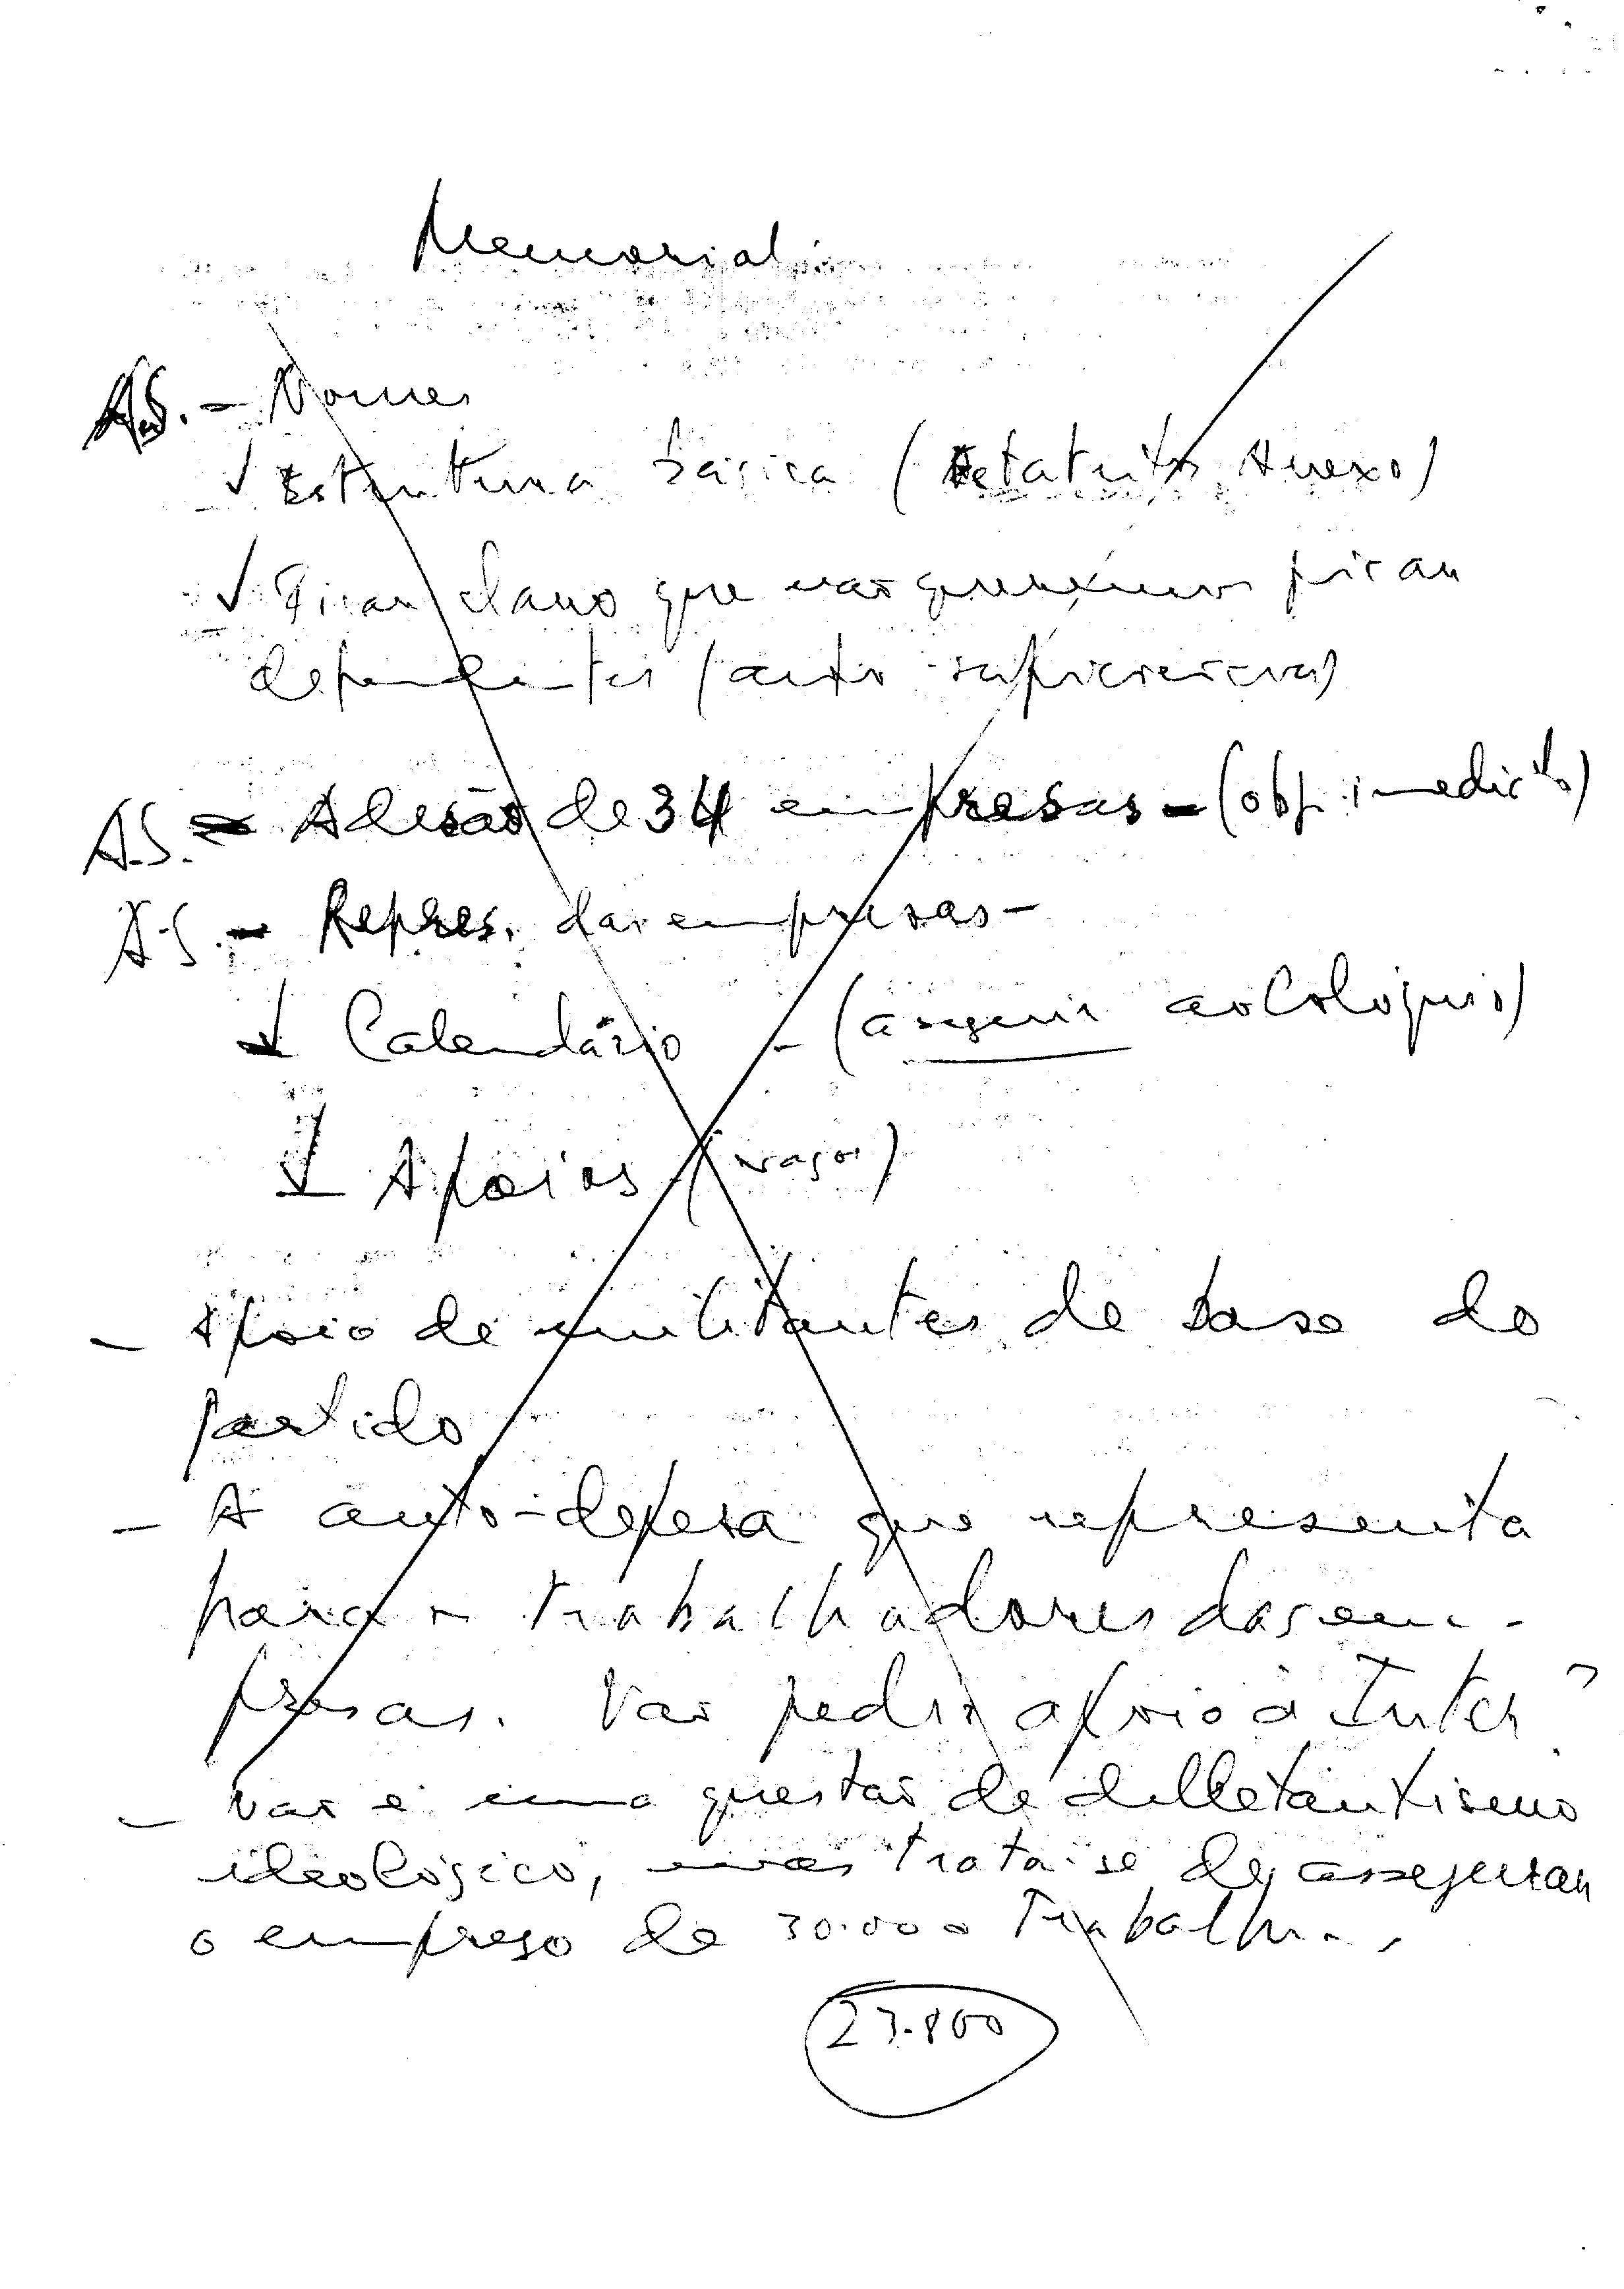 Memorial
A.S. - Nomes
✓ Estrutura básica (Estatutos Anexo)
✓ Ficar claro que não queremos ficar
dependentes (auto suficiencia)
A.S. - Adesão de 34 empresas - (obj. imediato)
A.S. - Repres. das empresas -
Calendário - (a seguir ao Colóquio)
Apoios (vagos)
- Apoio de militantes de base do
partido
- A auto-defesa que representa
para os trabalhadores das em-
presas. Vão pedir apoio à Inter?
- Não é uma questão de dilletantismo
ideológico, mas trata-se de assegurar
o emprego de 30.000 Trabalh..
23.800